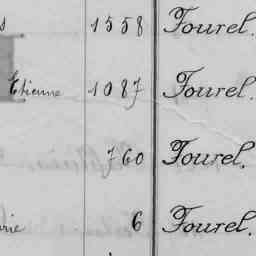 s 1558 Fourel.
Etienne 1087 Fourel.
760 Fourel.
rie 6 Fourel.